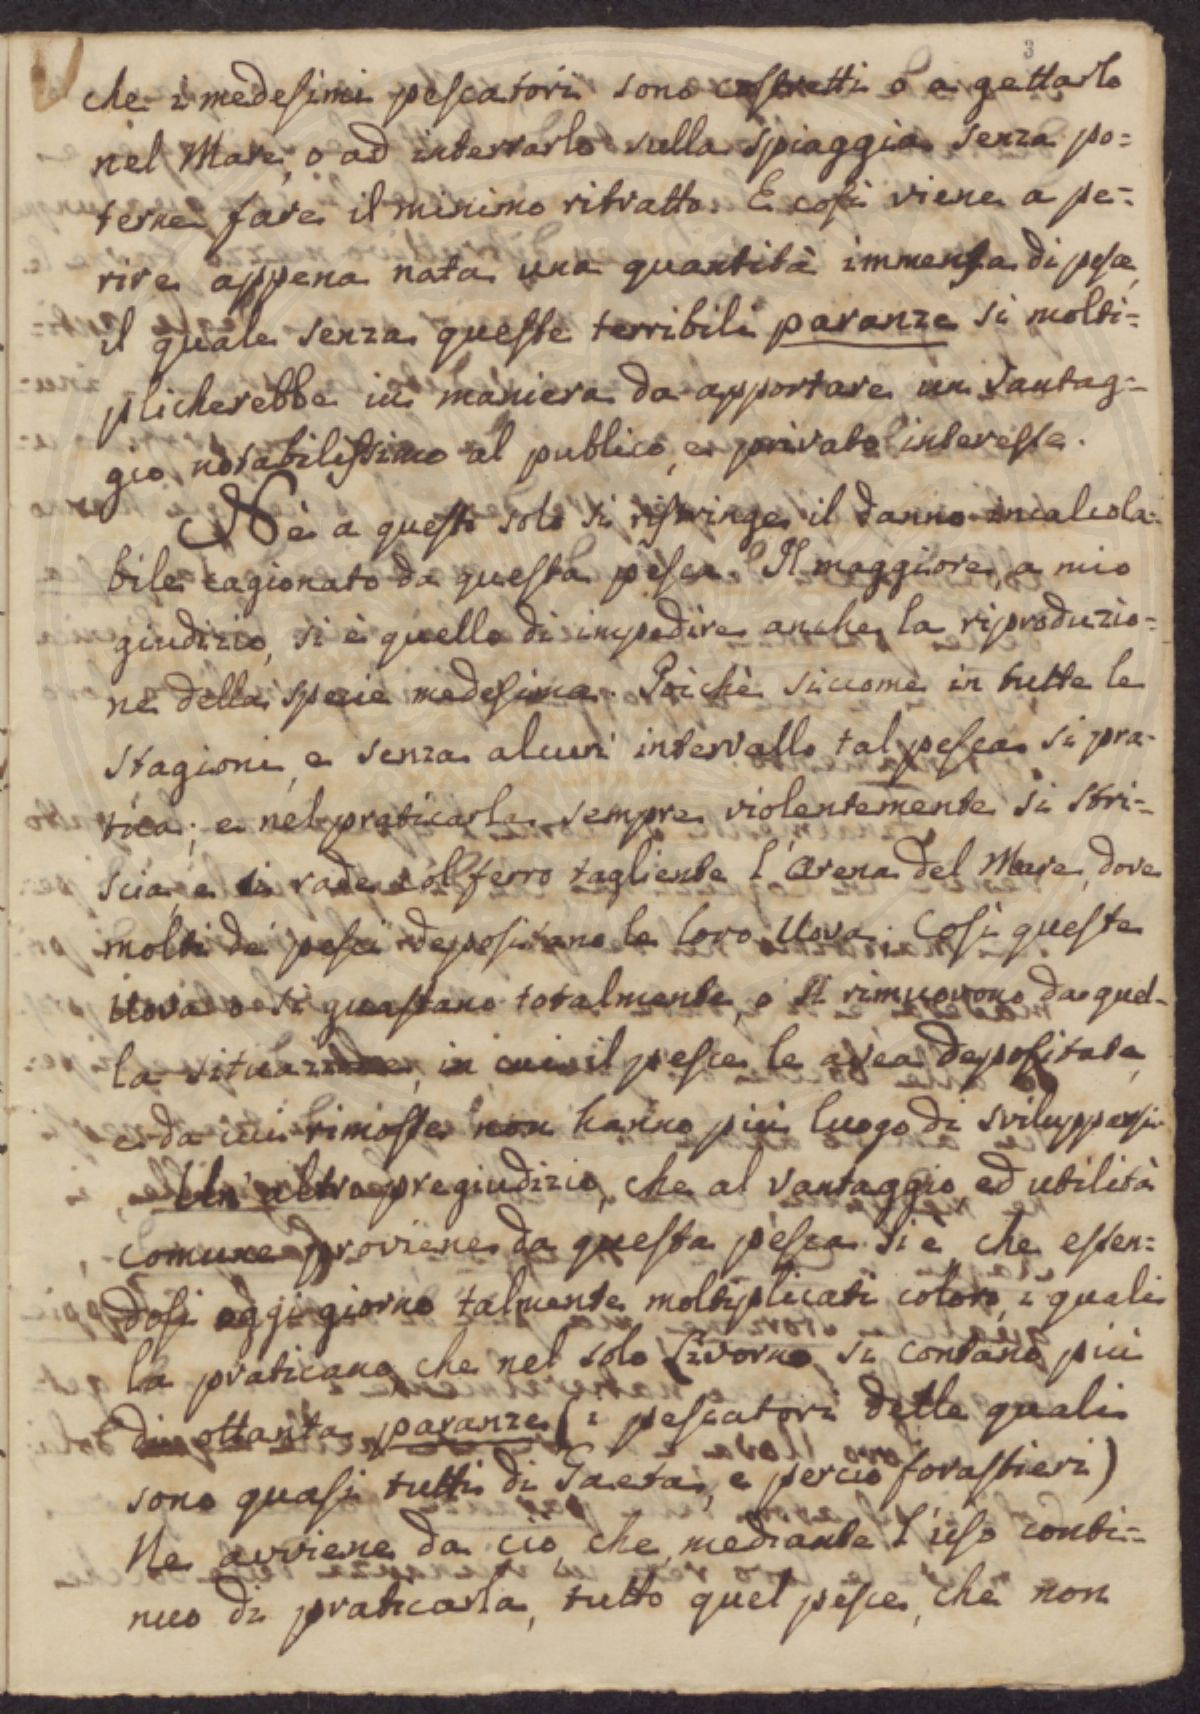 3
che i medesimi pescatori sono costretti o a gettarlo
nel Mare, o ad interrarlo sulla spiaggia senza po=
terne fare il minimo ritratto. E così viene a pe=
rire appena nata una quantità immensa di pesce,
il quale senza queste terribili paranze si molti=
plicherebbe in maniera da apportare un vantag=
gio notabilissimo al publico, e privato interesse.
Nè a questo solo si ristringe il danno incalcola=
bile cagionato da questa pesca. Il maggiore, a mio
giudizio, si è quello di impedire anche la riproduzio=
ne della specie medesima. Poichè siccome in tutte le
stagioni, e senza alcun intervallo tal pesca si pra=
tica; e nel praticarla sempre violentemente si stri=
scia, e si rade col ferro tagliente l'arena del Mare, dove
molti de' pesci depositano le loro Uova. Così queste
Uova o si guastano totalmente, o si rimuovono da quel=
la situazione, in cui il pesce le avea depositate,
e da cui rimosse non hanno più luogo di svilupparsi.
Un'altro pregiudizio, che al vantaggio ed utilità
comune proviene da questa pesca si è, che essen=
dosi oggi giorno talmente moltiplicati coloro, i quali
la praticano, che nel solo Livorno si contano più
di ottanta paranze (i pescatori delle quali
sono quasi tutti di Gaeta, e perciò forastieri)
Ne avviene da ciò, che mediante l'uso conti=
nuo di praticarla, tutto quel pesce, che non